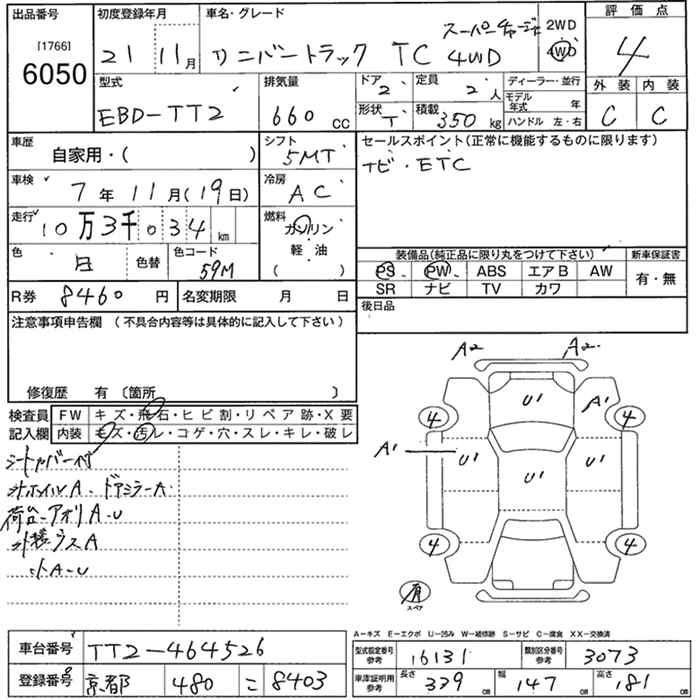 出品番号
[1766]
6050
初度登録年月
21 11月
車名・グレード
スーパーチャージャ
サンバートラック TC 4WD
2WD
4WD
評価点
4
外装 内装
C C
型式
EBD-TT2
排気量
660 cc
ドア 2
形状 T
定員 2人
積載 350 kg
ディーラー・並行
モデル年式 年
ハンドル 左・右
車歴
自家用・( )
シフト
5MT
セールスポイント(正常に機能するものに限ります)
ナビ・ETC
車検
7年11月(19日)
冷房
AC
走行
10万3千034 km
燃料
ガソリン
軽・油
( )
色
白 色替
色コード
59M
装備品(純正品に限り丸をつけて下さい)
PS PW ABS エアB AW
SR ナビ TV カワ
新車保証書
有・無
R券 8460円
名変期限 月 日
後日品
注意事項申告欄(不具合内容等は具体的に記入して下さい)
修復歴 有〔箇所 〕
検査員記入欄
FW キズ・飛石・ヒビ割・リペア跡・X要
内装 キズ・汚レ・コゲ・穴・スレ・キレ・破レ
シートカバー付
外ホイルA・ドアミラーA・
荷台-アオリA・U
外装ラスA
小A・U
A2 A2
U1 A1
4 4
A1 U1 U1 U1
4 4
有
スペア
A-キズ E-エクボ U-凹み W-補修跡 S-サビ C-腐食 XX-交換済
車台番号 TT2-464526
登録番号 京都 480 こ 8403
型式指定番号 参考 16131
類別区分番号 参考 3073
車庫証明用 参考 長さ 339 cm 幅 147 cm 高さ 181 cm